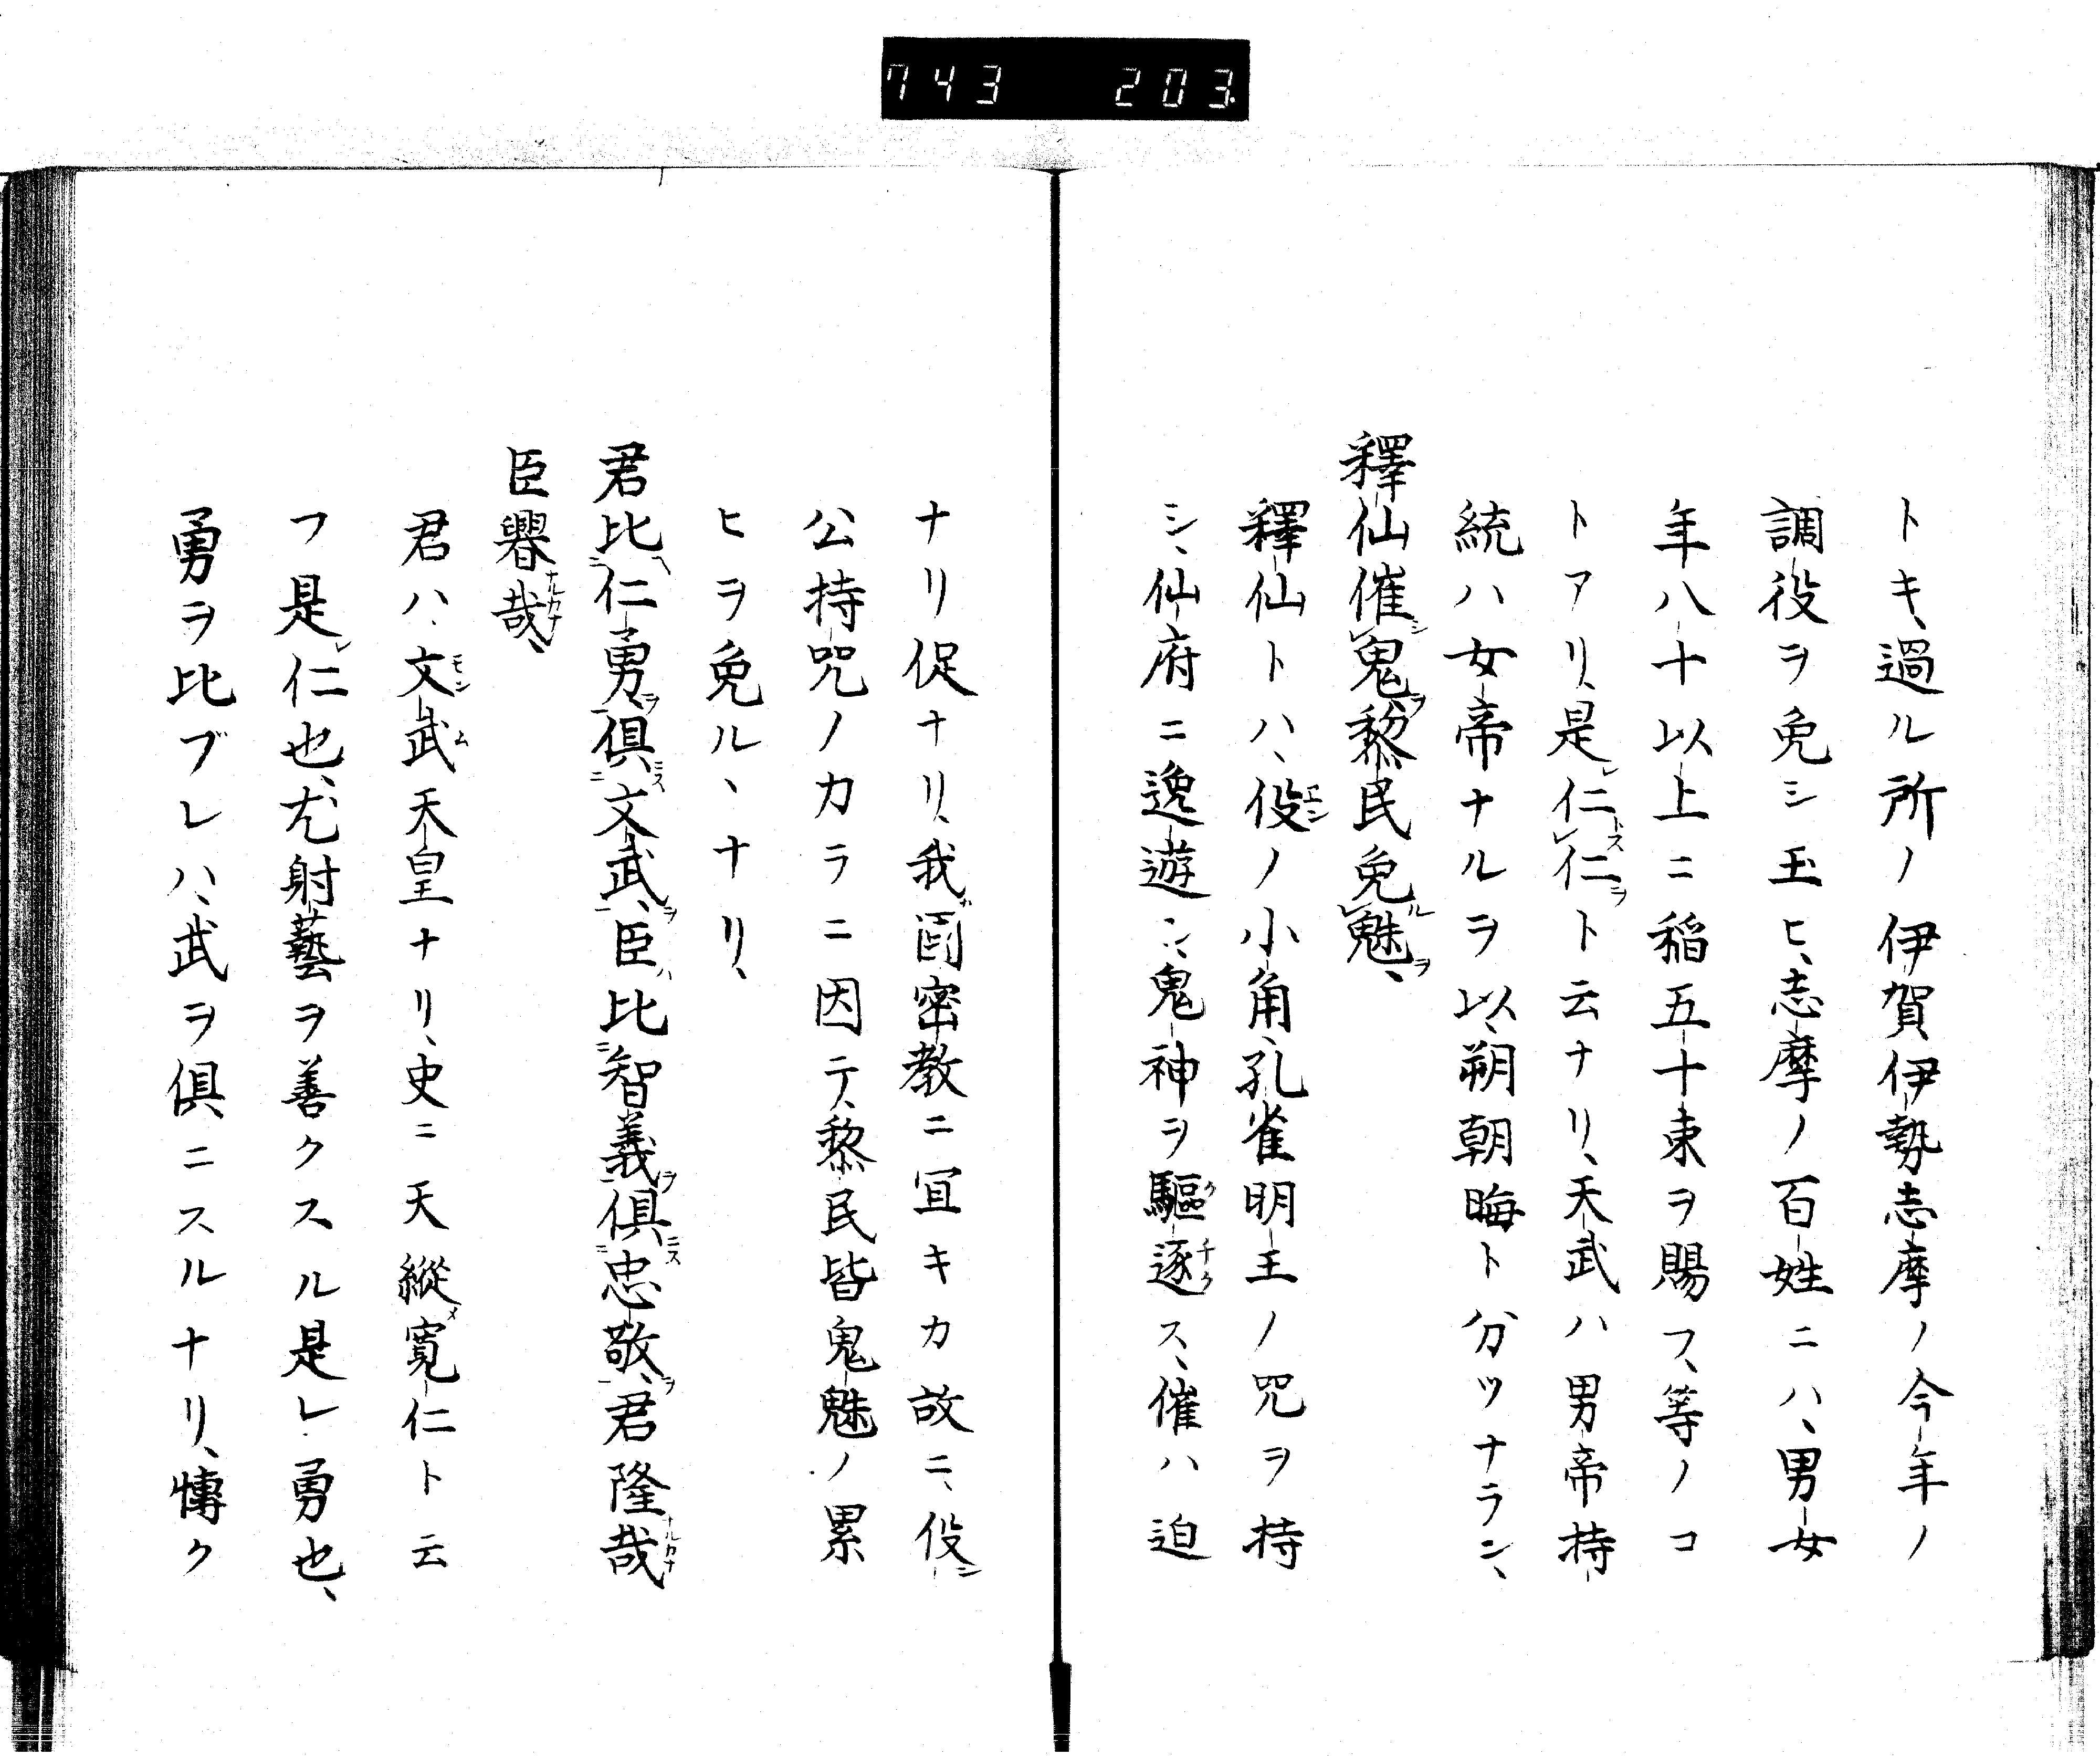 743 203.
トキ、過ル所ノ伊賀伊勢志摩ノ今年ノ
調役ヲ免シ玉ヒ、志摩ノ百姓ニハ、男女
年八十以上ニ稲五十束ヲ賜フ、等ノコ
トアリ、是レ仁トスレ仁ヲト云ナリ、天武ハ男帝持
統ハ女帝ナルヲ以、朔朝晦ト分ツナラン、
釋仙催シレ鬼ヲ、黎民免ルレ魅ヲ、
釋仙トハ、役エンノ小角、孔雀明王ノ咒ヲ持
シ、仙府ニ逸遊シ、鬼神ヲ驅ク逐チクス、催ハ迫
ナリ促ナリ、我カ國密教ニ宜キカ故ニ、役エン
公持咒ノカラニ因テ、黎民皆鬼魅ノ累
ヒヲ免ル、ナリ、
君ハ比シ二仁勇ヲ一倶ニス二文武ヲ一、臣ハ比シ二智義ヲ一倶ニス二忠敬ヲ一、君隆哉ナルカナ
臣譽哉ナルカナ、
君ハ、文モン武ム天皇ナリ、史ニ天縱メ寬仁ト云
フ是レ仁也、尤射藝ヲ善クスル是レ勇也、
勇ヲ比ブレハ、武ヲ倶ニスルナリ、慱ク